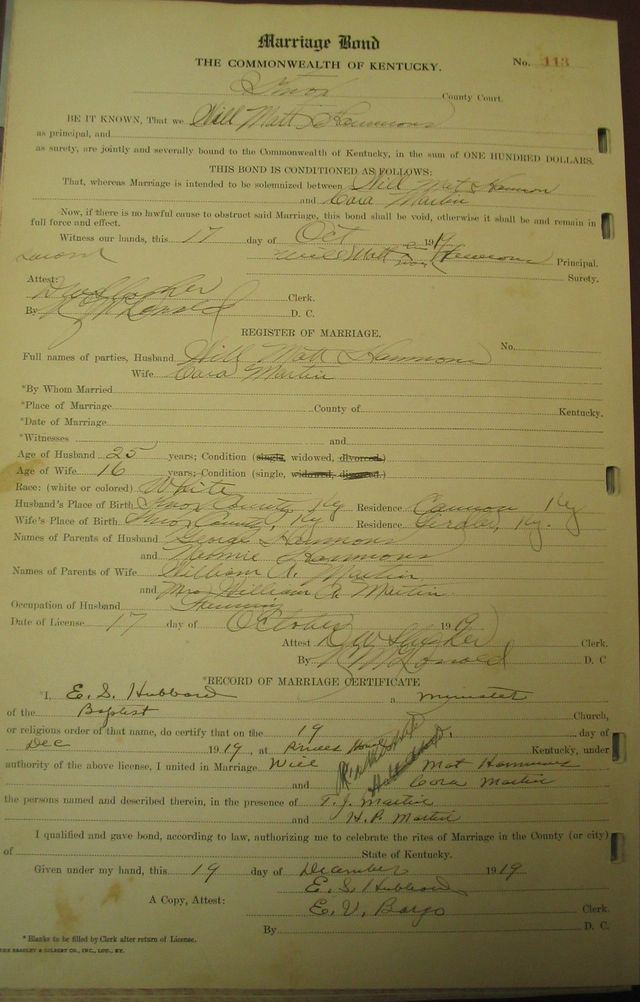 Marriage Bond
THE COMMONWEALTH OF KENTUCKY. No. 113
Knox County Court.
BE IT KNOWN, That we Will Matt Hammons
as principal, and
as surety, are jointly and severally bound to the Commonwealth of Kentucky, in the sum of ONE HUNDRED DOLLARS.
THIS BOND IS CONDITIONED AS FOLLOWS:
That, whereas Marriage is intended to be solemnized between Will Mat Hammon
and Cora Martin
Now, if there is no lawful cause to obstruct said Marriage, this bond shall be void, otherwise it shall be and remain in
full force and effect.
Witness our hands, this 17 day of Oct 1919
Will Matt Hammons Principal.
Surety.
Attest:
Clerk.
By D. C.
REGISTER OF MARRIAGE.
No.
Full names of parties, Husband Will Matt Hammons
Wife Cora Martin
*By Whom Married
*Place of Marriage County of Kentucky.
*Date of Marriage
*Witnesses and
Age of Husband 25 years; Condition (single, widowed, divorced.)
Age of Wife 16 years; Condition (single, widowed, divorced.)
Race: (white or colored) White
Husband's Place of Birth Knox County, Ky Residence Cannon Ky
Wife's Place of Birth Knox County, Ky Residence Girdler, Ky.
Names of Parents of Husband George Hammons
and Hammons
Names of Parents of Wife William A. Martin
and Mrs William A. Martin
Occupation of Husband Farming
Date of License 17 day of October 1919
Attest Clerk.
By D. C
*RECORD OF MARRIAGE CERTIFICATE
*I, E. S. Hubbard a minister
of the Baptist Church,
or religious order of that name, do certify that on the 19 day of
Dec 1919, at Kentucky, under
authority of the above license, I united in Marriage Will Mat Hammons
and Cora Martin
the persons named and described therein, in the presence of T. J. Martin
and H. P. Martin
I qualified and gave bond, according to law, authorizing me to celebrate the rites of Marriage in the County (or city)
of State of Kentucky.
Given under my hand, this 19 day of December 1919
E. S. Hubbard
A Copy, Attest: E. V. Bargo Clerk.
By D. C.
* Blanks to be filled by Clerk after return of License.
BRADLEY & GILBERT CO., INC., LOU., KY.